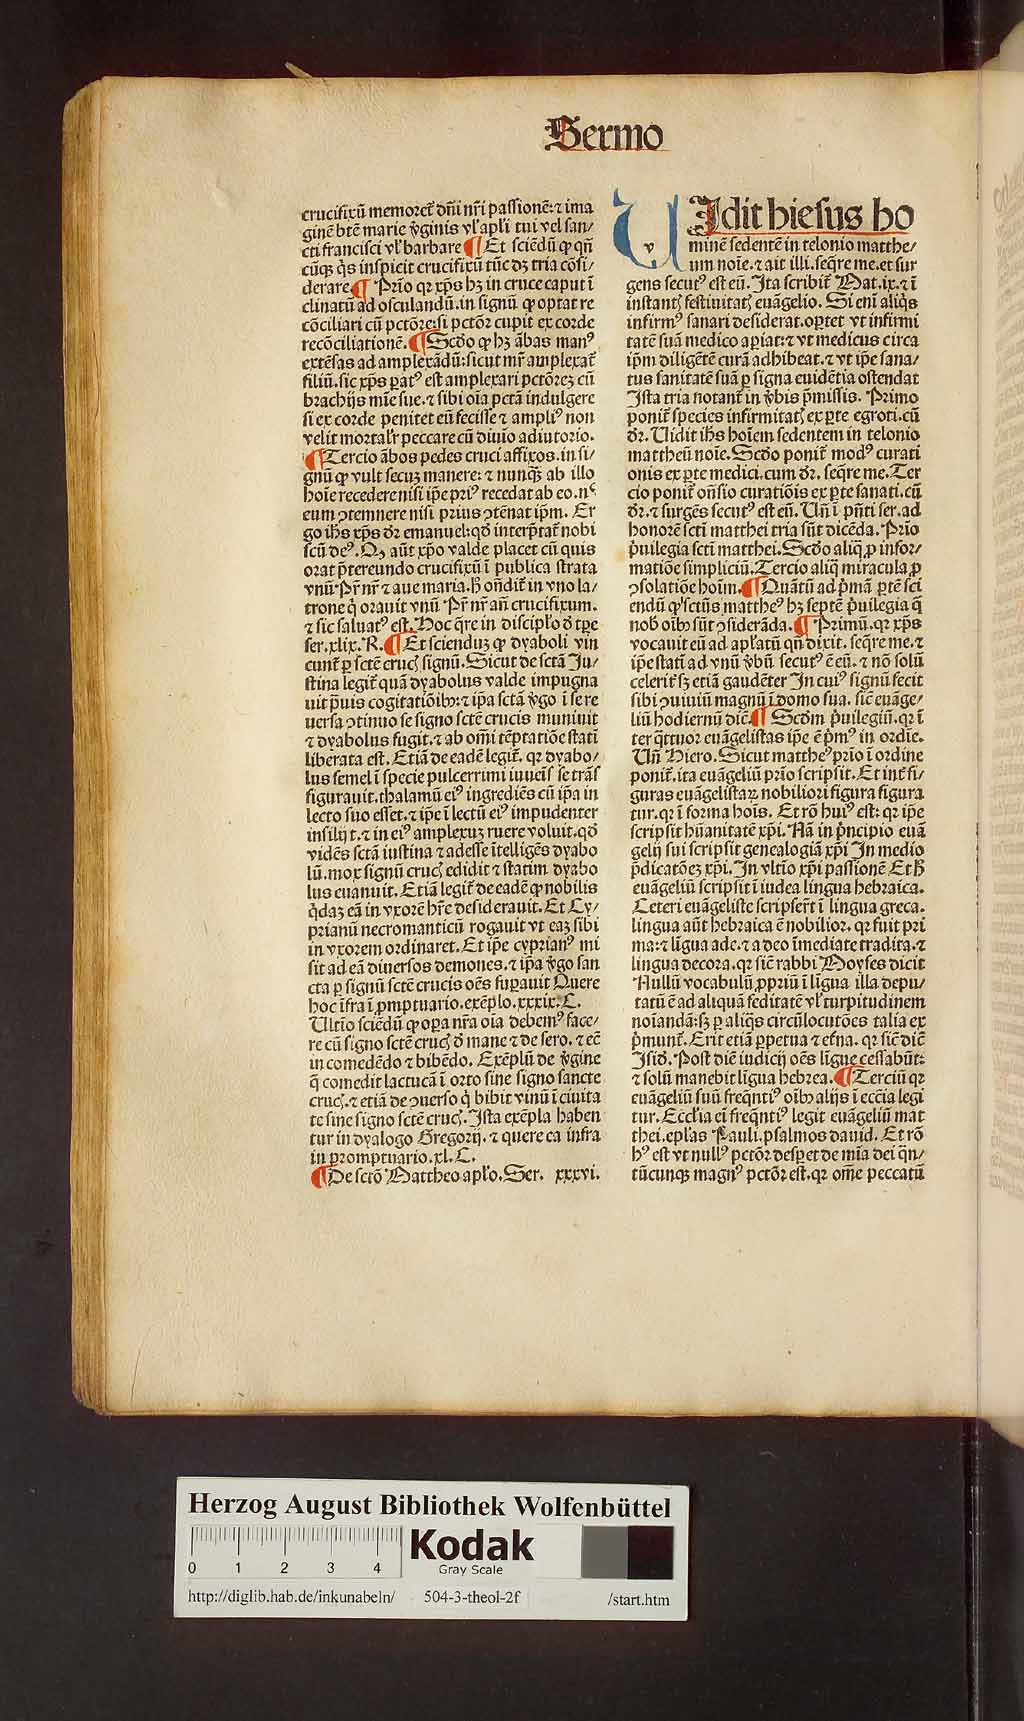 Sermo
crucifixū memoret᷑ dn̄i nr̄i passionē: ⁊ ima
ginē btē marie v̓ginis vl̓ apl̓i tui vel san/
cti francisci vl̓ barbare ¶ Et sciēdū ꝙ qn̄
cūqꝫ q̓s inspicit crucifixū tūc dꝫ tria cōsi/
derare ¶ Prīo qꝛ xp̄s hꝫ in cruce caput ī
clinatū ad osculandū. in signū ꝙ optat re
cōciliari cū pctōre: si pctōr cupit ex corde
recōciliationē. ¶ Scd̄o ꝙ hꝫ ābas manꝰ
extēsas ad amplexādū: sicut mr̄ amplexat᷑
filiū. sic xp̄s ꝑatꝰ est amplexari pctōreꝫ cū
brachijs mīe sue. ⁊ sibi oīa pctā indulgere
si ex corde penitet eū fecisse ⁊ ampliꝰ non
velit mortalr̓ peccare cū diuio adiutorio.
¶ Tercio ābos pedes cruci affixos. in si/
gnū ꝙ vult secuꝫ manere: ⁊ nunqꝫ̄ ab illo
hoīe recedere nisi ip̄e priꝰ recedat ab eo. nᶜ
eum ꝯtemnere nisi prius ꝯtēnat ip̄m. Er
go ih̄s xp̄s dr̄ emanuel: qd̓ interp̄tat᷑ nobi
scū deꝰ. Qꝫ aūt xp̄o valde placet cū quis
orat p̄tereundo crucifixū ī publica strata
vnū Pr̄ nr̄ ⁊ aue maria. h̓ on̄dit᷑ in vno la/
trone q̓ orauit vnū Pr̄ nr̄ an̄ crucifixum.
⁊ sic saluatꝰ est. Hoc q̄re in discipl̓o d̓ tp̄e
ser. xlix. R. ¶ Et scienduꝫ ꝙ dyaboli vin
cunt᷑ ꝑ sctē crucꝭ signū. Sicut de sctā Iu/
stina legit᷑ quā dyabolus valde impugna
uit p̓uis cogitatiōibꝫ: ⁊ ip̄a sctā v̓go ī se re
uersa ꝯtinuo se signo sctē crucis muniuit
⁊ dyabolus fugit. ⁊ ab om̄i tēptatiōe stati
liberata est. Etiā de eadē legit᷑. qꝛ dyabo/
lus semel ī specie pulcerrimi iuueīs se trās
figurauit. thalamū eiꝰ ingrediēs cū ip̄a in
lecto suo esset. ⁊ ip̄e ī lectū eiꝰ impudenter
insilijt. ⁊ in eiꝰ amplexuꝫ ruere voluit. qd̓
vidēs sctā iustina ⁊ adesse ītelligēs dyabo
lū. mox signū crucꝭ edidit ⁊ statim dyabo
lus euanuit. Etiā legit᷑ de eadē ꝙ nobilis
q̓daꝫ eā in vxorē hr̄e desiderauit. Et Cy/
prianū necromanticū rogauit vt eaꝫ sibi
in vxorem ordinaret. Et ip̄e cyprianꝰ mi
sit ad eā diuersos demones. ⁊ ip̄a v̓go san
cta ꝑ signū sctē crucis oēs suꝑauit Quere
hoc īfra ī ꝓmptuario. exēplo. xxxix. C.
Ultīo sciēdū ꝙ oꝑa nr̄a oīa debemꝰ face/
re cū signo sctē crucꝭ d̓ mane ⁊ de sero. ⁊ ec̄
in comedēdo ⁊ bibēdo. Exēplū de v̓gine
q̄ comedit lactucā ī orto sine signo sancte
crucꝭ. ⁊ etiā de ꝯuerso q̓ bibit vinū ī ciuita
te sine signo sctē crucꝭ. Ista exēpla haben
tur in dyalogo Gregorij. ⁊ quere ea infra
in promptuario. xl. C.
¶ De sctō Mattheo apl̓o. Ser. xxxvi.
UIdit hiesus ho
v
minē sedentē in telonio matthe/
um noīe. ⁊ ait illi. seq̄re me. et sur
gens secutꝰ est eū. Ita scribit᷑ Mat. ix. ⁊ ī
instantꝭ festiuitatꝭ euāgelio. Si enī aliq̓s
infirmꝰ sanari desiderat. oꝑtet vt infirmi
tatē suā medico aꝑiat: ⁊ vt medicus circa
ip̄m diligētē curā adhibeat. ⁊ vt ip̄e sana/
tus sanitatē suā ꝑ signa euidētia ostendat
Ista tria notant᷑ in v̓bis p̄missis. Primo
ponit᷑ species infirmitatꝭ ex ꝑte egroti. cū
dr̄. Uidit ih̄s hoīem sedentem in telonio
mattheū noīe. Scd̄o ponit᷑ modꝰ curati
onis ex ꝑte medici. cum dr̄. seq̄re me. Ter
cio ponit᷑ on̄sio curatiōis ex ꝑte sanati. cū
dr̄. ⁊ surgēs secutꝰ est eū. Un̄ ī pn̄ti ser. ad
honorē scti matthei tria sūt dicēda. Prīo
p̓uilegia scti matthei. Scd̄o aliq̄ ꝓ infor/
matiōe simpliciū. Tercio aliq̄ miracula ꝓ
ꝯsolatiōe hoīm. ¶ Quātū ad p̓mā ꝑtē sci
endū ꝙ sctūs mattheꝰ hꝫ septē p̓uilegia q̄
nob̓ oībꝫ sūt ꝯsiderāda. ¶ Primū. qꝛ xp̄s
vocauit eū ad apl̓atū qn̄ dixit. seq̄re me. ⁊
ip̄e stati ad vnū v̓bū secutꝰ ē eū. ⁊ nō solū
celerit᷑ sꝫ etiā gaudēter In cuiꝰ signū fecit
sibi ꝯuiuiū magnū ī domo sua. sic̄ euāge/
liū hodiernū dic̄. ¶ Scd̄m p̓uilegiū. qꝛ ī
ter q̄ttuor euāgelistas ip̄e ē p̓mꝰ in ordīe.
Un̄ Hiero. Sicut mattheꝰ prīo ī ordine
ponit᷑. ita euāgeliū prīo scripsit. Et int᷑ fi/
guras euāgelistaꝝ nobiliori figura figura
tur. qꝛ ī forma hoīs. Et rō huiꝰ est: qꝛ ip̄e
scripsit hūanitatē xp̄i. Nā in p̓ncipio euā
gelij sui scripsit genealogiā xp̄i In medio
p̄dicatōeꝫ xp̄i. In vltīo xp̄i passionē Et h̓
euāgeliū scripsit ī iudea lingua hebraica.
Ceteri euāgeliste scripser̄t ī lingua greca.
lingua aūt hebraica ē nobilior. qꝛ fuit pri
ma: ⁊ līgua ade. ⁊ a deo īmediate tradita. ⁊
lingua decora. qꝛ sic̄ rabbi Moyses dicit
Nullū vocabulū ꝓpriū ī līgua illa depu/
tatū ē ad aliquā feditatē vl̓ turpitudinem
noīandā: sꝫ ꝑ aliq̓s circūlocutōes talia ex
p̓munt᷑. Erit etiā ꝑpetua ⁊ et̓na. qꝛ sic̄ dic̄
Isid̓. Post diē iudicij oēs līgue cessabūt:
⁊ solū manebit līgua hebrea. ¶ Terciū qꝛ
euāgeliū suū freq̄ntiꝰ oībꝫ alijs ī ecc̄ia legi
tur. Eccl̓ia eī freq̄ntiꝰ legit euāgeliū mat
thei. epl̓as Pauli. psalmos dauid. Et rō
hꝰ est vt nullꝰ pctōr desꝑet de mīa dei qn̄/
tūcunqꝫ magnꝰ pctōr est. qꝛ om̄e peccatū
Herzog August Bibliothek Wolfenbüttel
0 1 2 3 4
Kodak
Gray Scale
http://diglib.hab.de/inkunabeln/ 504-3-theol-2f /start.htm